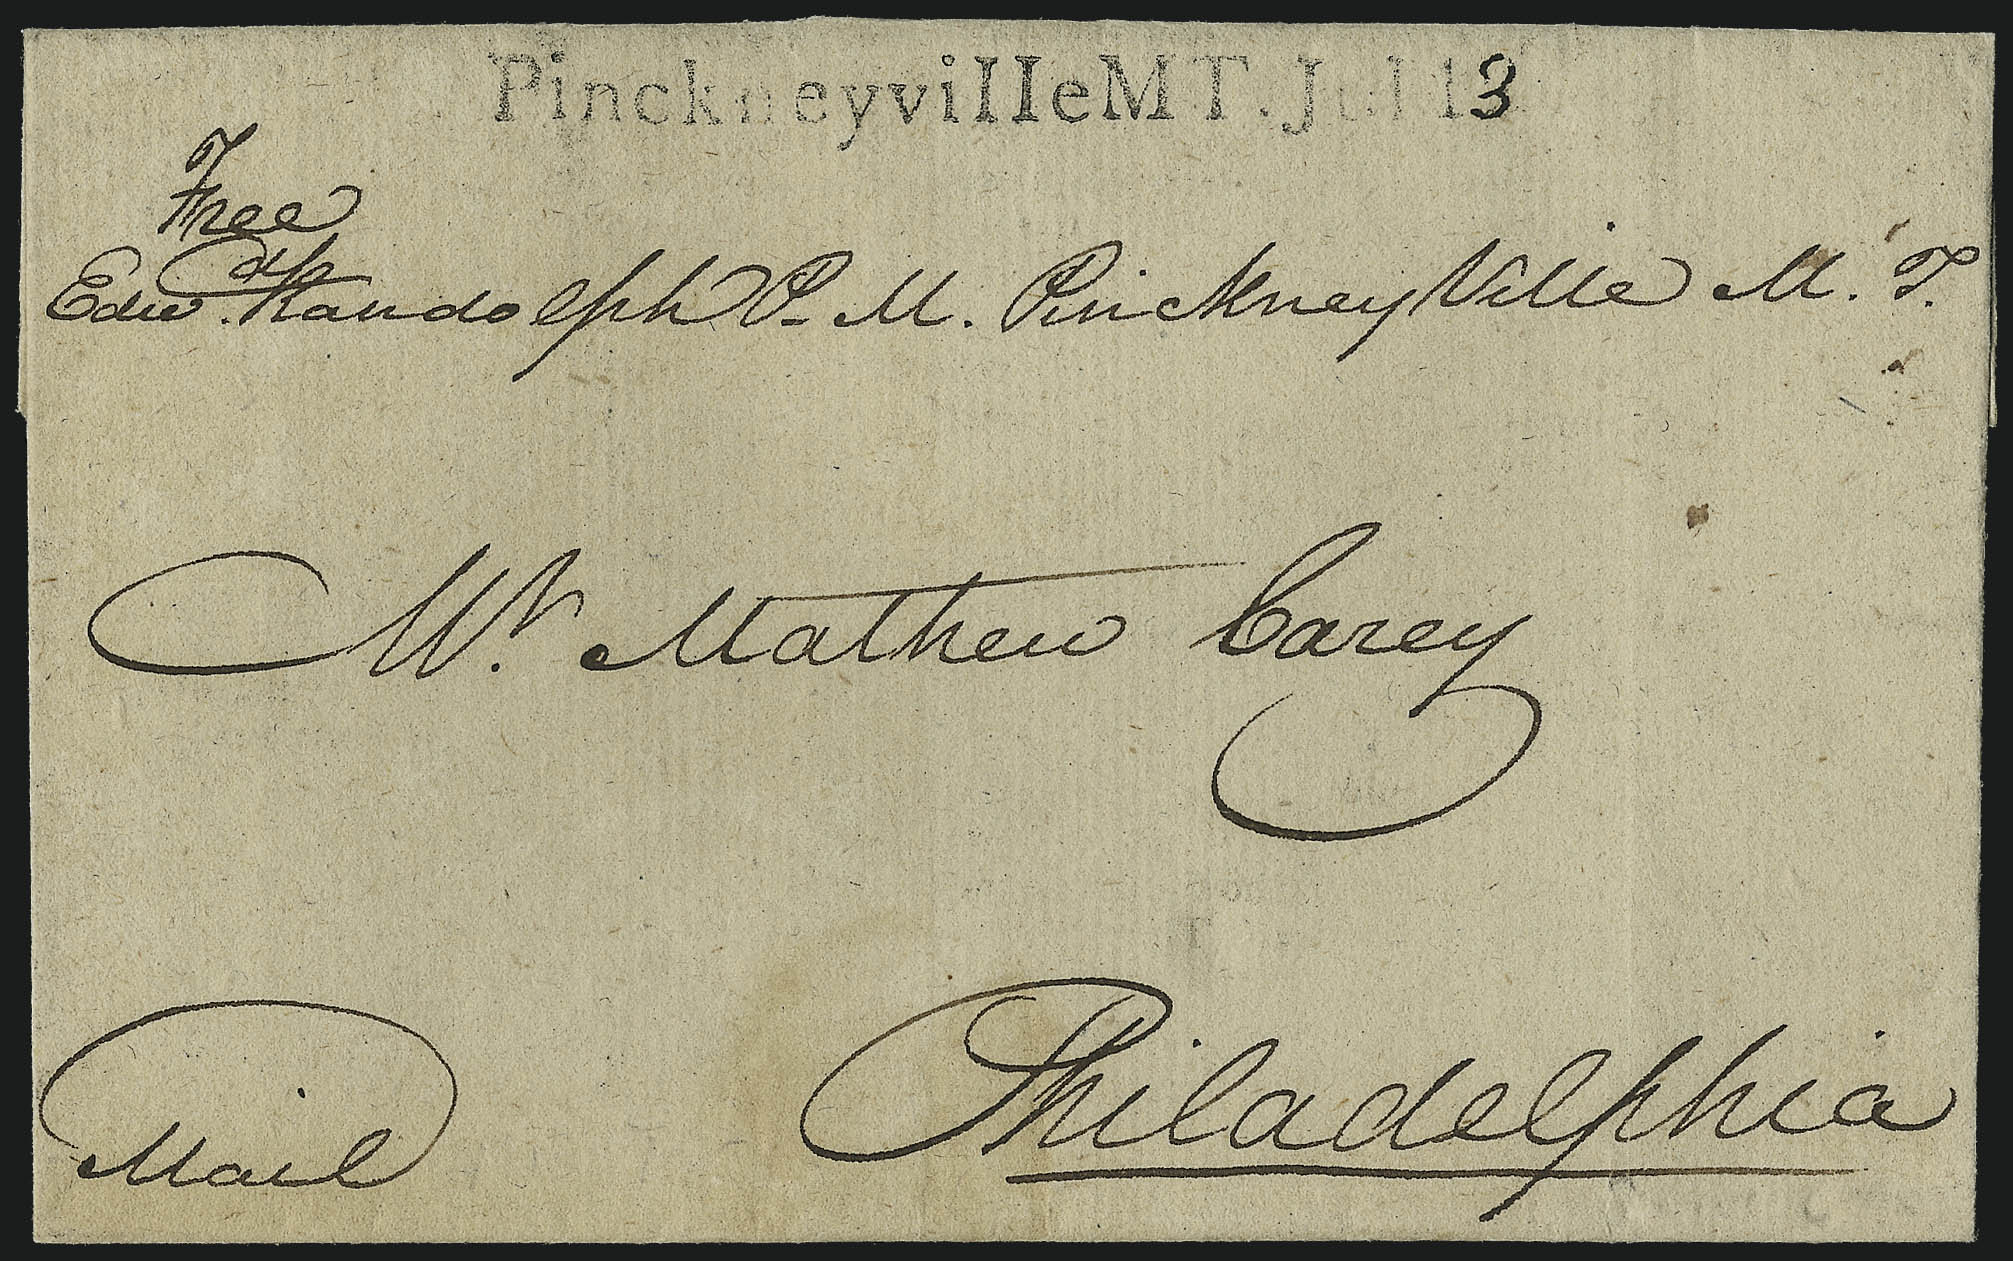 Pinckneyville M T. Jul 13
Free
Edw. Randolph P. M. PinckneyVille M. T.
Mr. Mathew Carey
Philadelphia
Mail